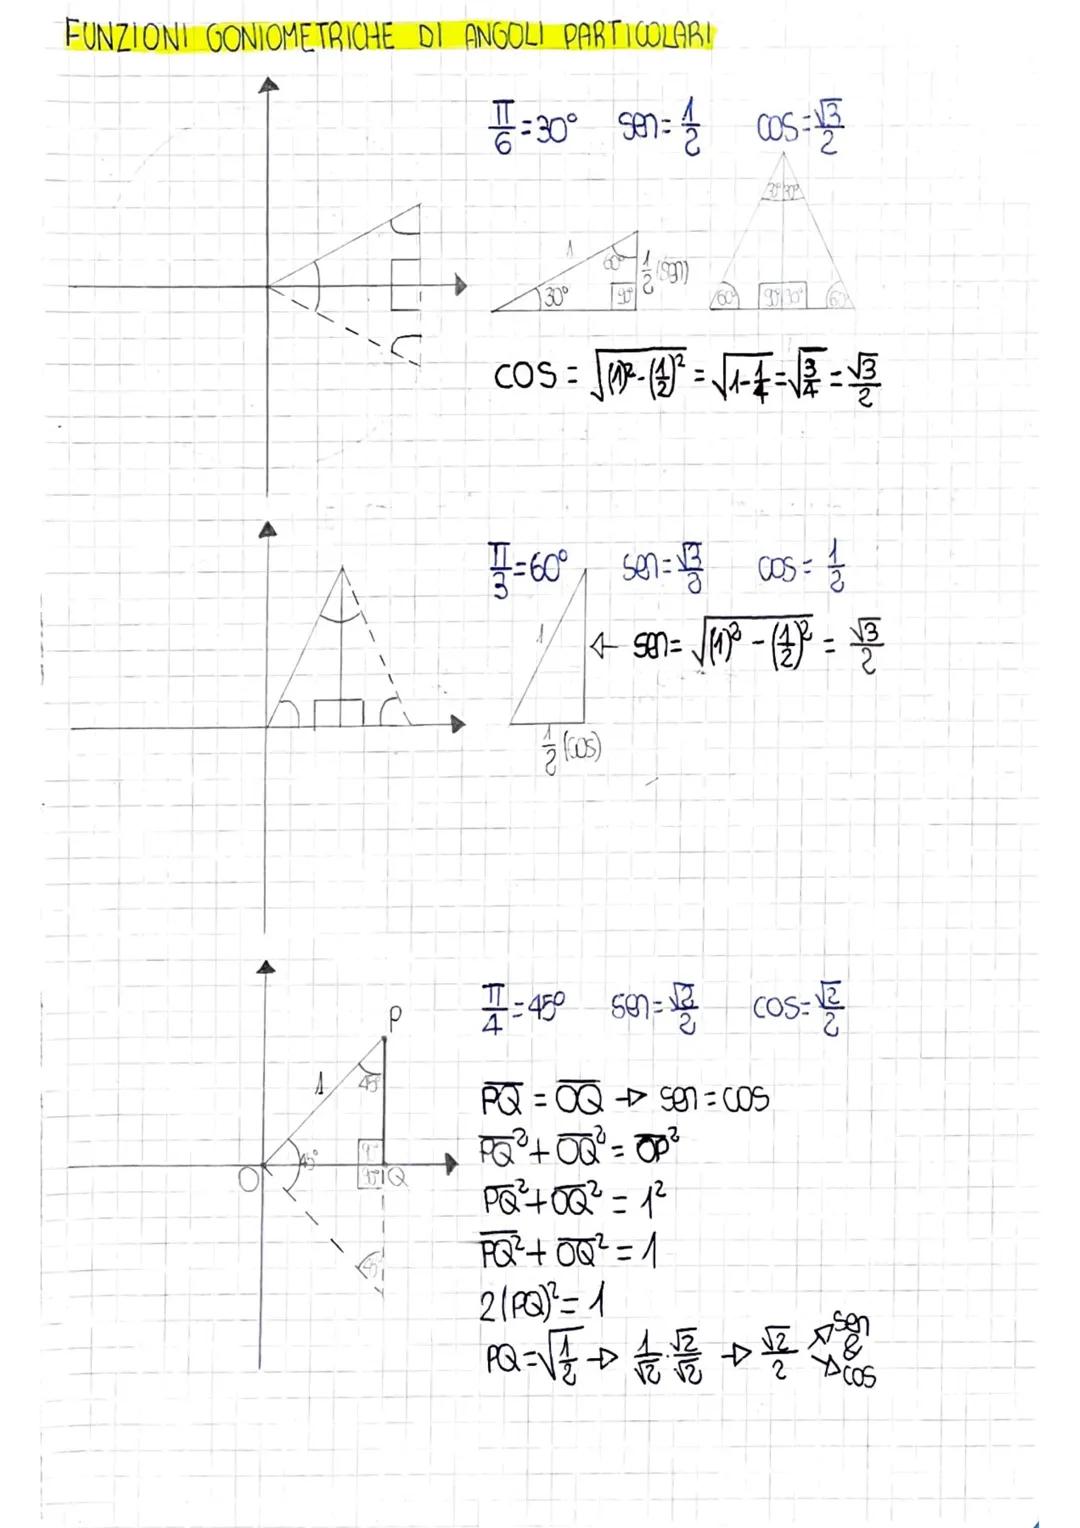 FUNZIONI GONIOMETRICHE DI ANGOLI PARTICOLARI
π/6 = 30° sen = 1/2 cos = √3/2
30° 30°
1 60° 1/2 (sen)
30° 90°
60° 90° 30° 60°
cos = √((1)² - (1/2)²) = √(1 - 1/4) = √(3/4) = √3/2
π/3 = 60° sen = √3/2 cos = 1/2
1 ← sen = √((1)² - (1/2)²) = √3/2
1/2 (cos)
π/4 = 45° sen = √2/2 cos = √2/2
P
1 45°
45° 90°
O 90° Q
45°
PQ = OQ → sen = cos
PQ² + OQ² = OP²
PQ² + OQ² = 1²
PQ² + OQ² = 1
2(PQ)² = 1
PQ = √(1/2) → 1/√2 · √2/√2 → √2/2 sen e cos